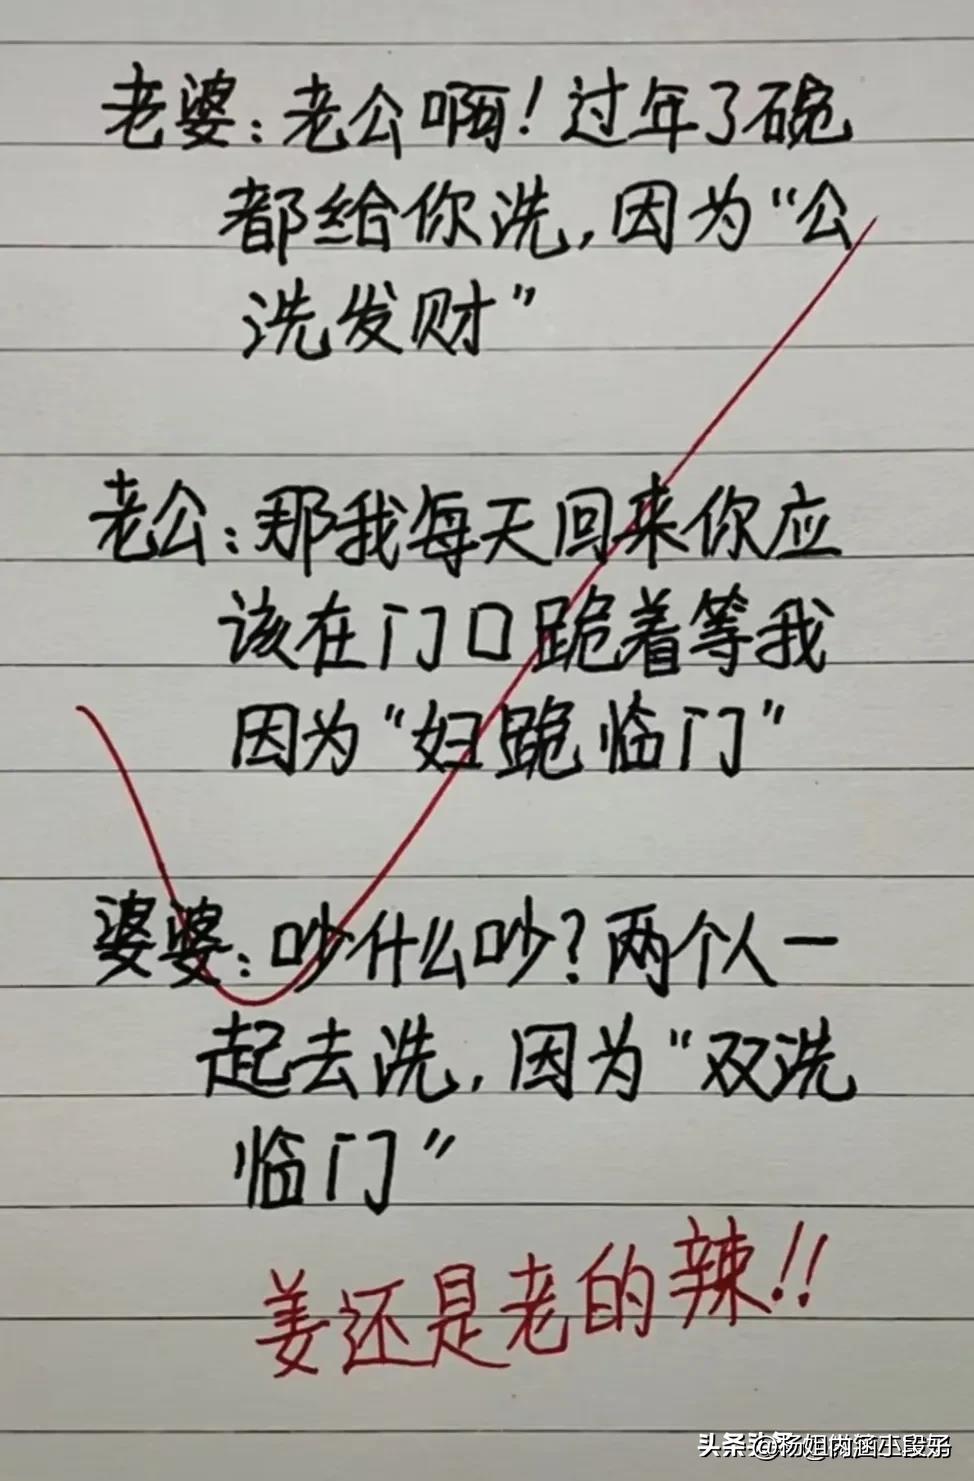 老婆：老公啊！过年了碗
都给你洗，因为“公
洗发财”
老公：那我每天回来你应
该在门口跪着等我
因为“妇跪临门”
婆婆：吵什么吵？两个人一
起去洗，因为“双洗
临门”
姜还是老的辣！！
头条 @杨姐内涵小段子